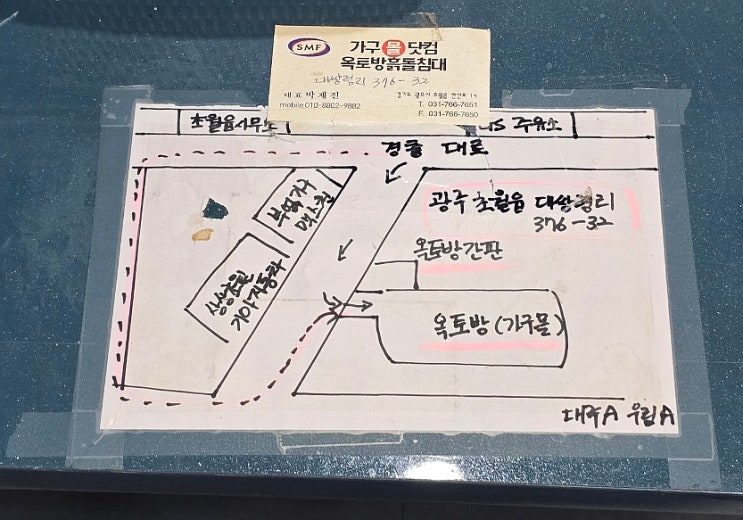 SMF
가구몰닷컴
옥토방흙돌침대
대쌍령리 376-32
대표 박재진
mobile.010-8802-9882
경기도 광주시 초월읍
T. 031-766-7651
F. 031-766-7650
초월읍사무소
주유소
경충 대로
부엌가구
맥스컴
광주 초월읍 대쌍령리
376-32
옥토방간판
기아자동차
옥토방 (가구몰)
대주A 우림A